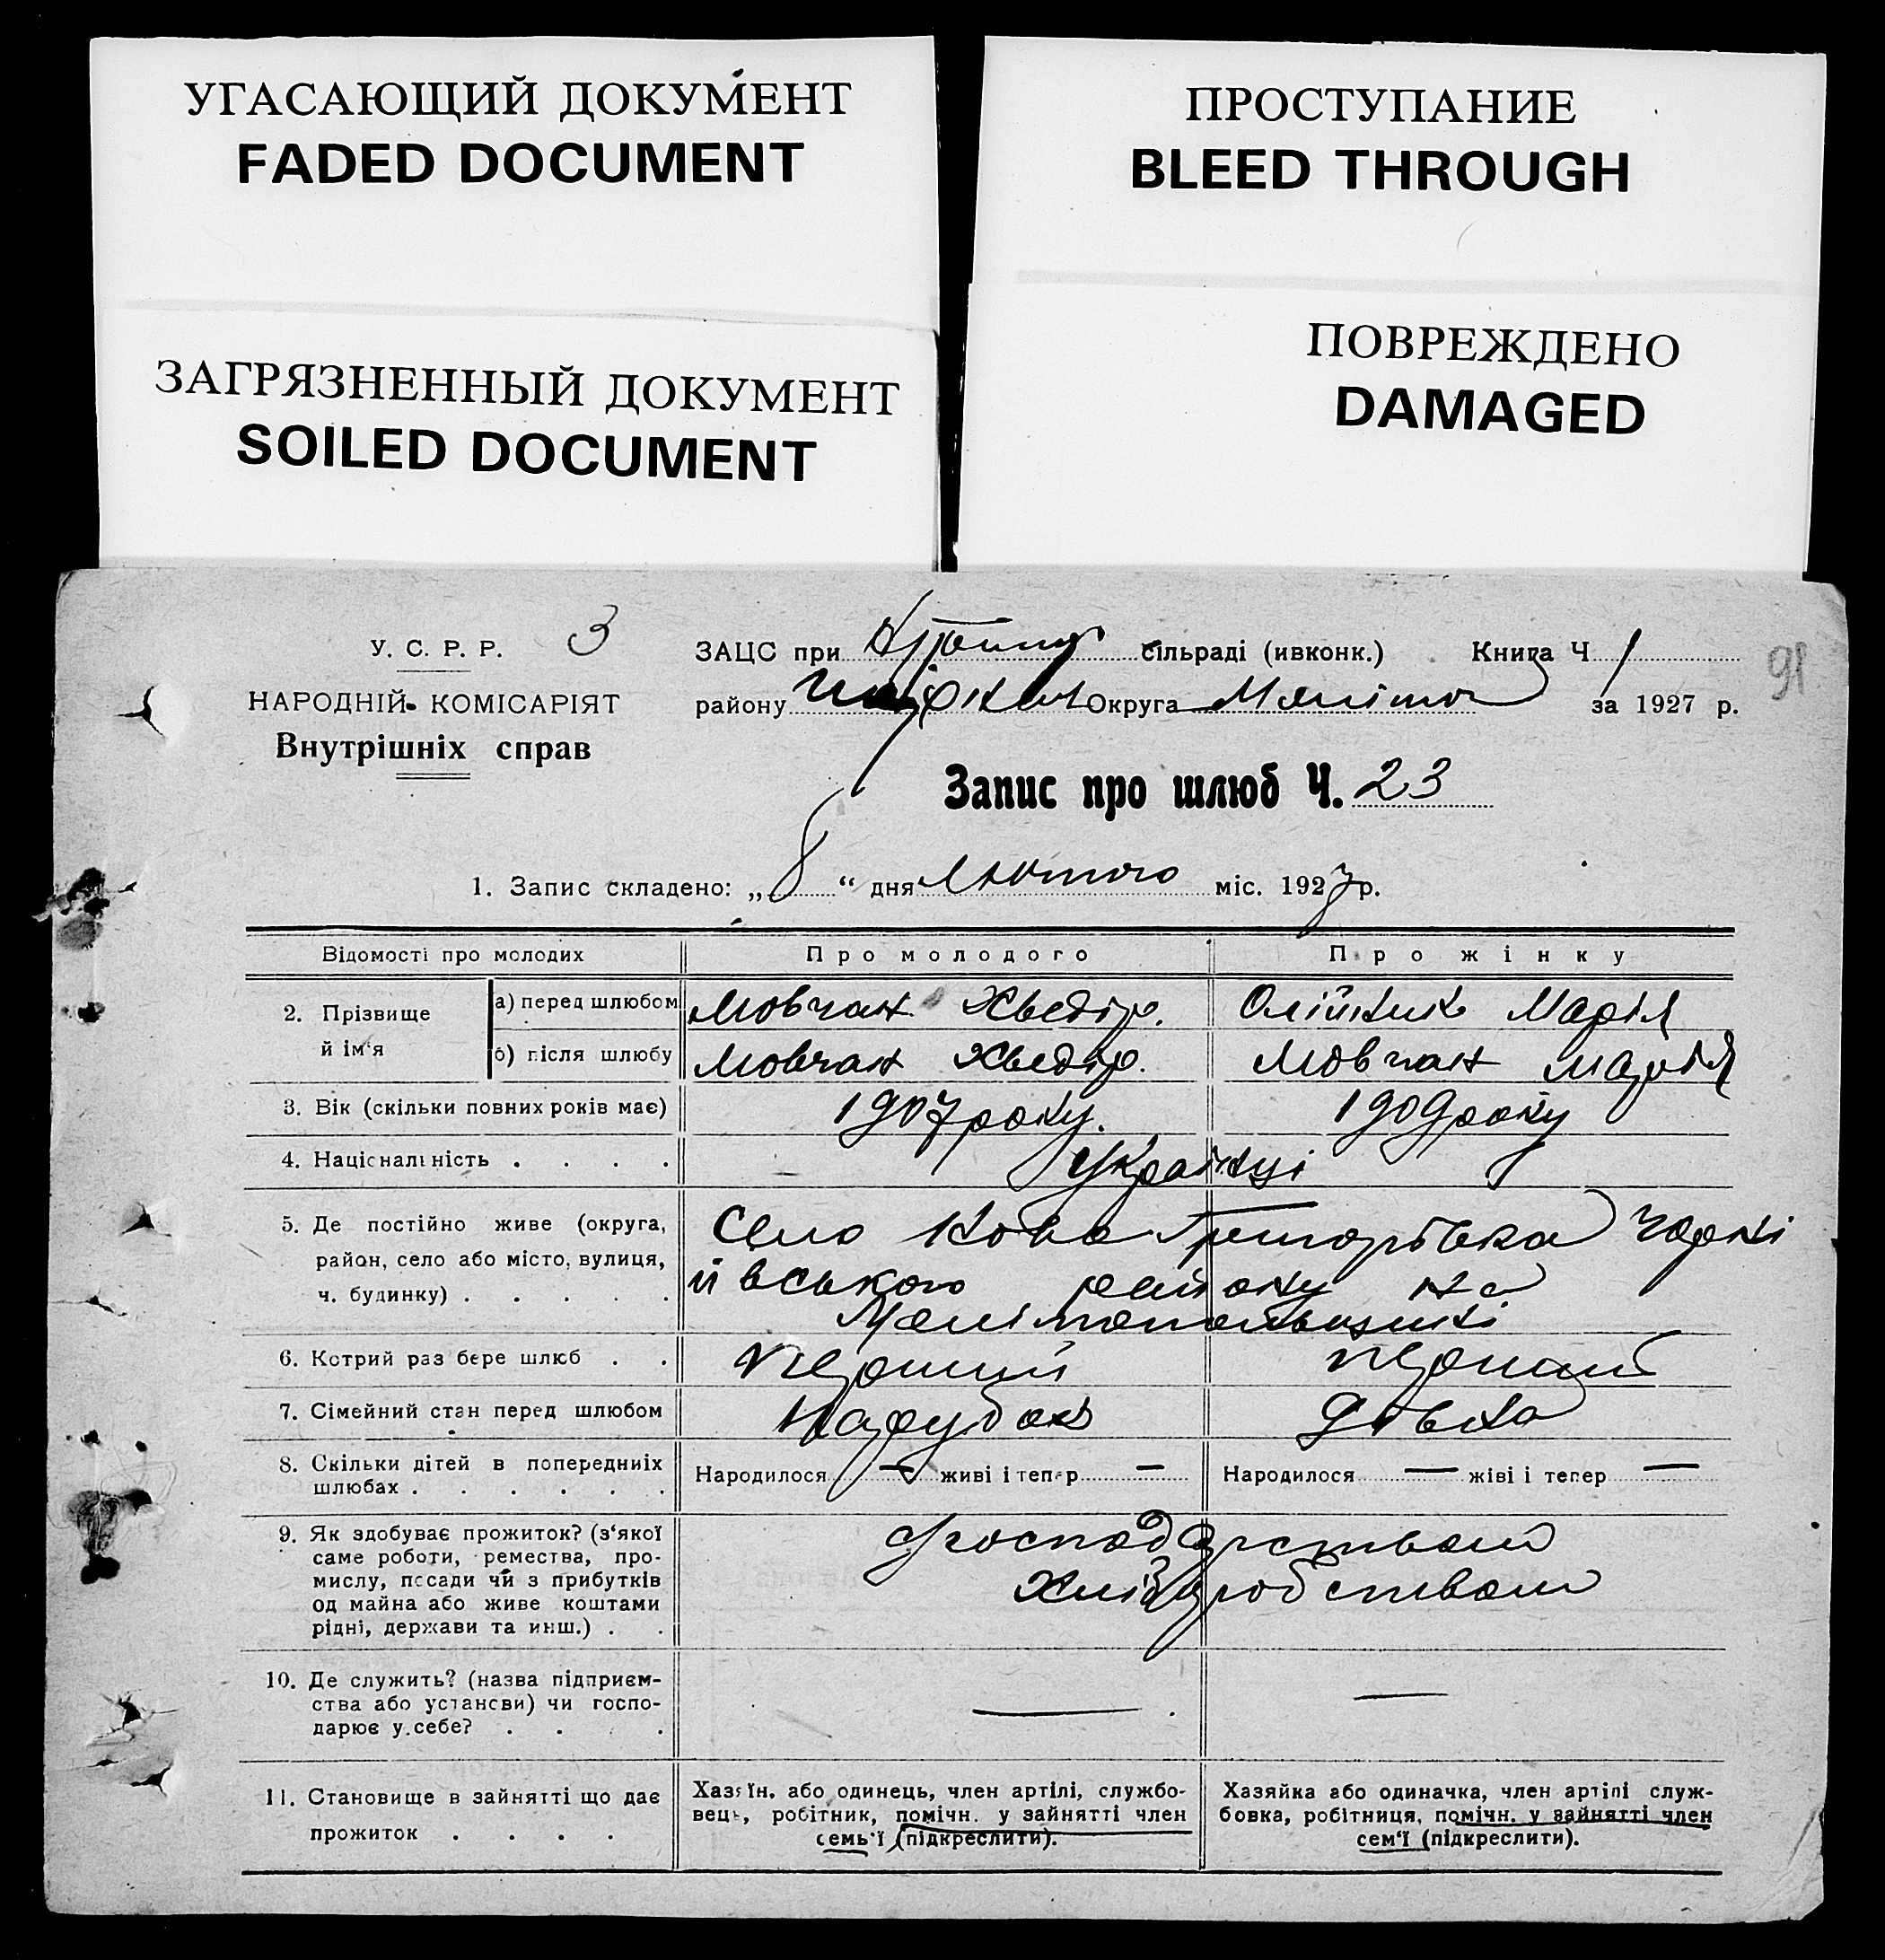 УГАСАЮЩИЙ ДОКУМЕНТ
FADED DOCUMENT
ЗАГРЯЗНЕННЫЙ ДОКУМЕНТ
SOILED DOCUMENT
ПРОСТУПАНИЕ
BLEED THROUGH
ПОВРЕЖДЕНО
DAMAGED
У. С. Р. Р. 3
НАРОДНІЙ КОМІСАРІЯТ
Внутрішніх справ
ЗАЦС при сільраді (ивконк.) Книга Ч. 1
91
району Округа Меліто за 1927 р.
Запис про шлюб Ч. 23
1. Запис складено: „ 8 “ дня Лютого міс. 1927 р.
Відомості про молодих Про молодого Про жінку
2. Прізвище й ім'я
а) перед шлюбом Мовчан Хведір. Олійник Марія
б) після шлюбу Мовчан Хведір. Мовчан Марія
3. Вік (скільки повних років має) 1907 року. 1909 року
4. Національність . . . . Українці
5. Де постійно живе (округа, Село Ново Григорівка Чорні
район, село або місто, вулиця, йвського району на
ч. будинку) . . . . . Мелітопольщині
6. Котрий раз бере шлюб . . перший перший
7. Сімейний стан перед шлюбом Парубок Дівка
8. Скільки дітей в попередниіх
шлюбах . . . . . . Народилося — живі і тепер — Народилося — жіві і тепер —
9. Як здобуває прожиток? (з'якої
саме роботи, ремества, про-
мислу, посади чи з прибутків
од майна або живе коштами
рідні, держави та инш.) . .
господарством
Хліборобством
10. Де служить? (назва підприєм-
ства або установи) чи госпо-
дарює у себе? . . . — —
11. Становище в зайнятті що дає
прожиток . . . .
Хазяїн, або одинець, член артілі, службо-
вець, робітник, помічн. у зайнятті член
семь'ї (підкреслити).
Хазяйка або одиначка, член артілі служ-
бовка, робітниця, помічн. у зайнятті член
сем'ї (підкреслити).